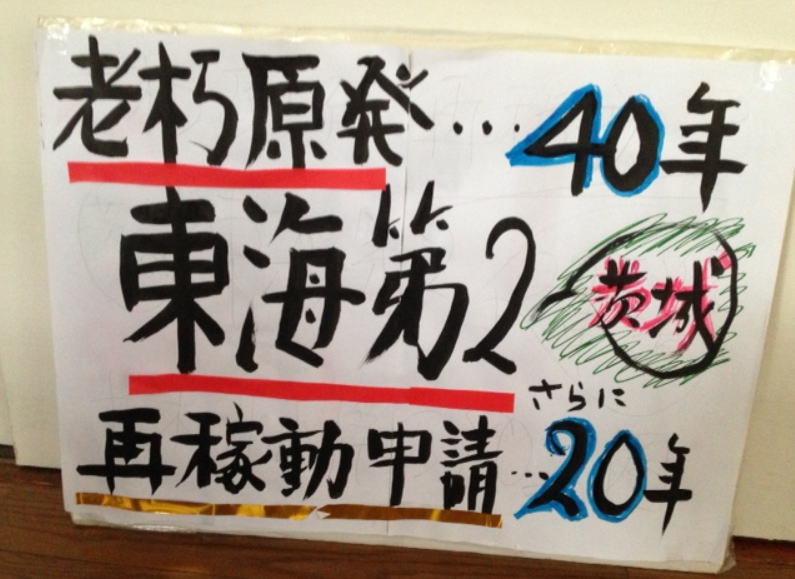 老朽原発…40年
東海第2
茨城
さらに
再稼動申請…20年